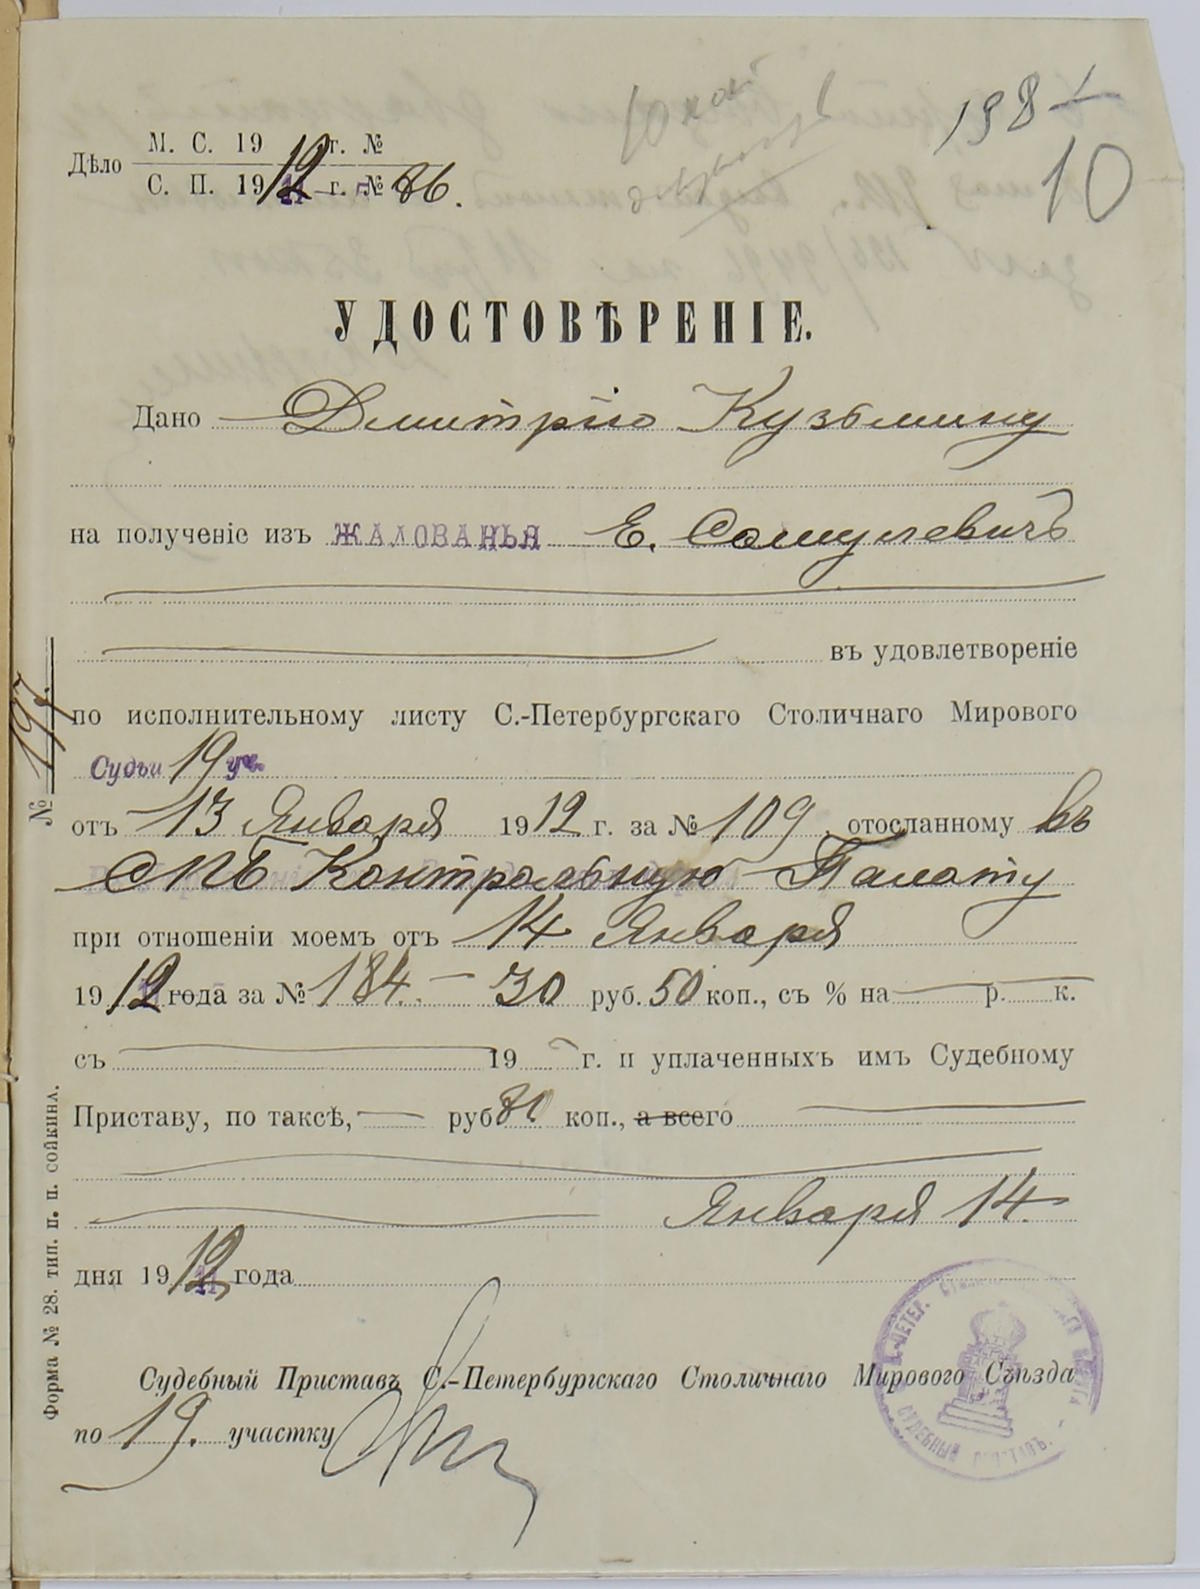 10 коп
198
10
М. С. 19 г. №
Дѣло
С. П. 1912 г. № 86.
УДОСТОВѢРЕНІЕ.
Дано Дмитрію Кузьмину
на полученіе изъ ЖАЛОВАНЬЯ Е. Самулевичъ
въ удовлетвореніе
по исполнительному листу С.-Петербургскаго Столичнаго Мирового
Судьи 19 уч.
отъ 13 Января 1912 г. за № 109, отосланному въ
СПБ Контрольную Палату
при отношеніи моемъ отъ 14 Января
1912 года за № 184. — 30 руб. 50 коп., съ % на р. к.
съ 19 г. и уплаченныхъ имъ Судебному
Приставу, по таксѣ, — руб 80 коп., а всего
Января 14
дня 1912 года
Судебный Приставъ С.-Петербургскаго Столичнаго Мирового Съѣзда
по 19. участку
№ 197.
Форма № 28. тип. п. п. сойкина.
СУДЕБНЫЙ ПРИСТАВЪ.